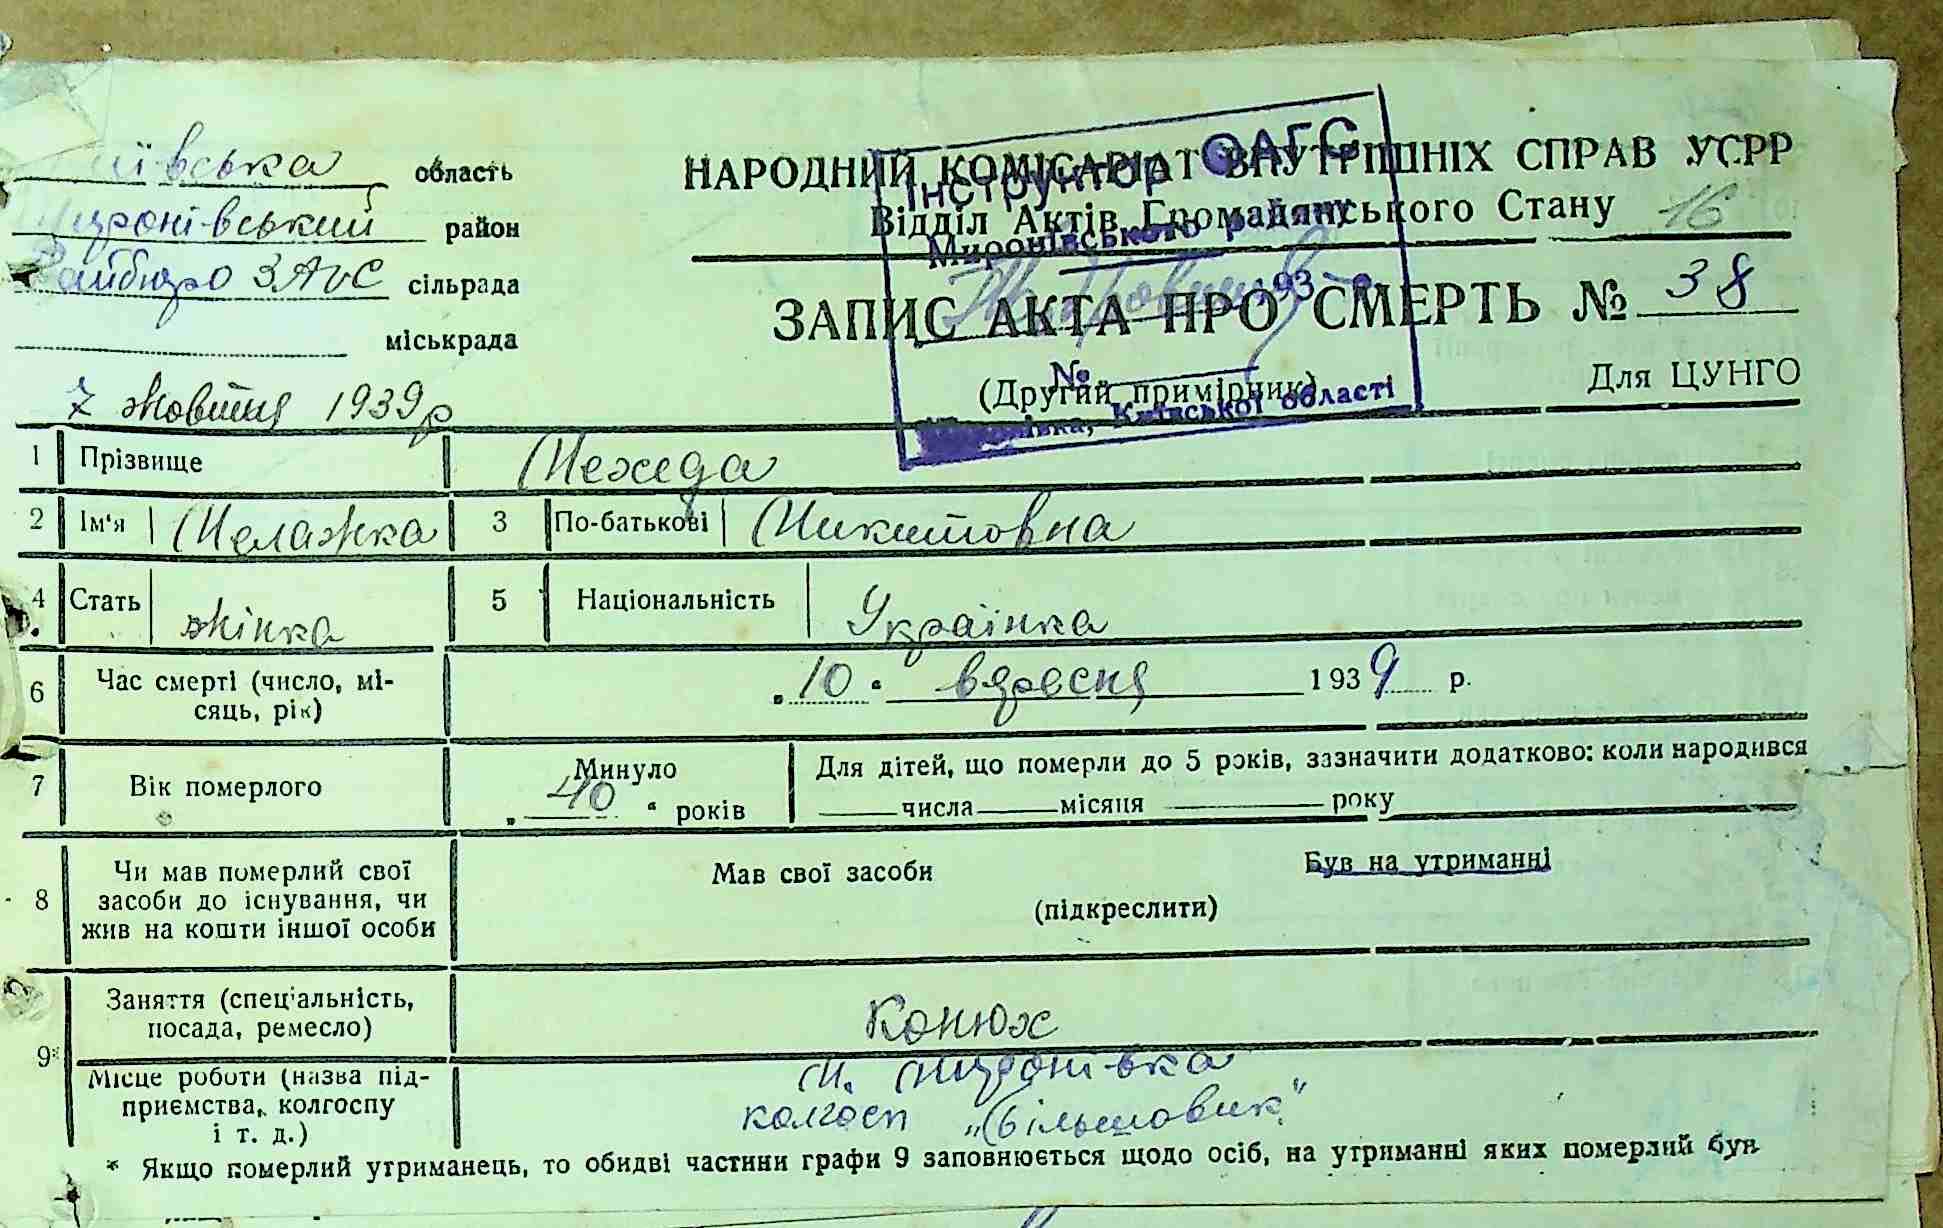 ївська область
Миронівський район
Райбюро ЗАГС сільрада
міськрада
7 жовтня 1939 р
НАРОДНИЙ КОМІСАРІАТ ВНУТРІШНІХ СПРАВ УСРР
Відділ Актів Громадянського Стану 16
ЗАПИС АКТА ПРО СМЕРТЬ № 38
(Другий примірник) Для ЦУНГО
Інструктор ОАГС
Миронівського району
193 р.
№
Київської області
1 Прізвище Нехеда
2 Ім'я Пелажка 3 По-батькові Микитовна
4 Стать жінка 5 Національність Українка
6 Час смерті (число, мі-
сяць, рік) „10" вересня 1939 р.
7 Вік померлого Минуло
„40" років
Для дітей, що померли до 5 років, зазначити додатково: коли народився
числа місяця року
8 Чи мав померлий свої
засоби до існування, чи
жив на кошти іншої особи
Мав свої засоби Був на утриманні
(підкреслити)
9* Заняття (спеціальність,
посада, ремесло) Конюх
Місце роботи (назва під-
приємства, колгоспу
і т. д.)
М. Миронівка
колгосп „Більшовик"
* Якщо померлий утриманець, то обидві частини графи 9 заповнюється щодо осіб, на утриманні яких померлий був